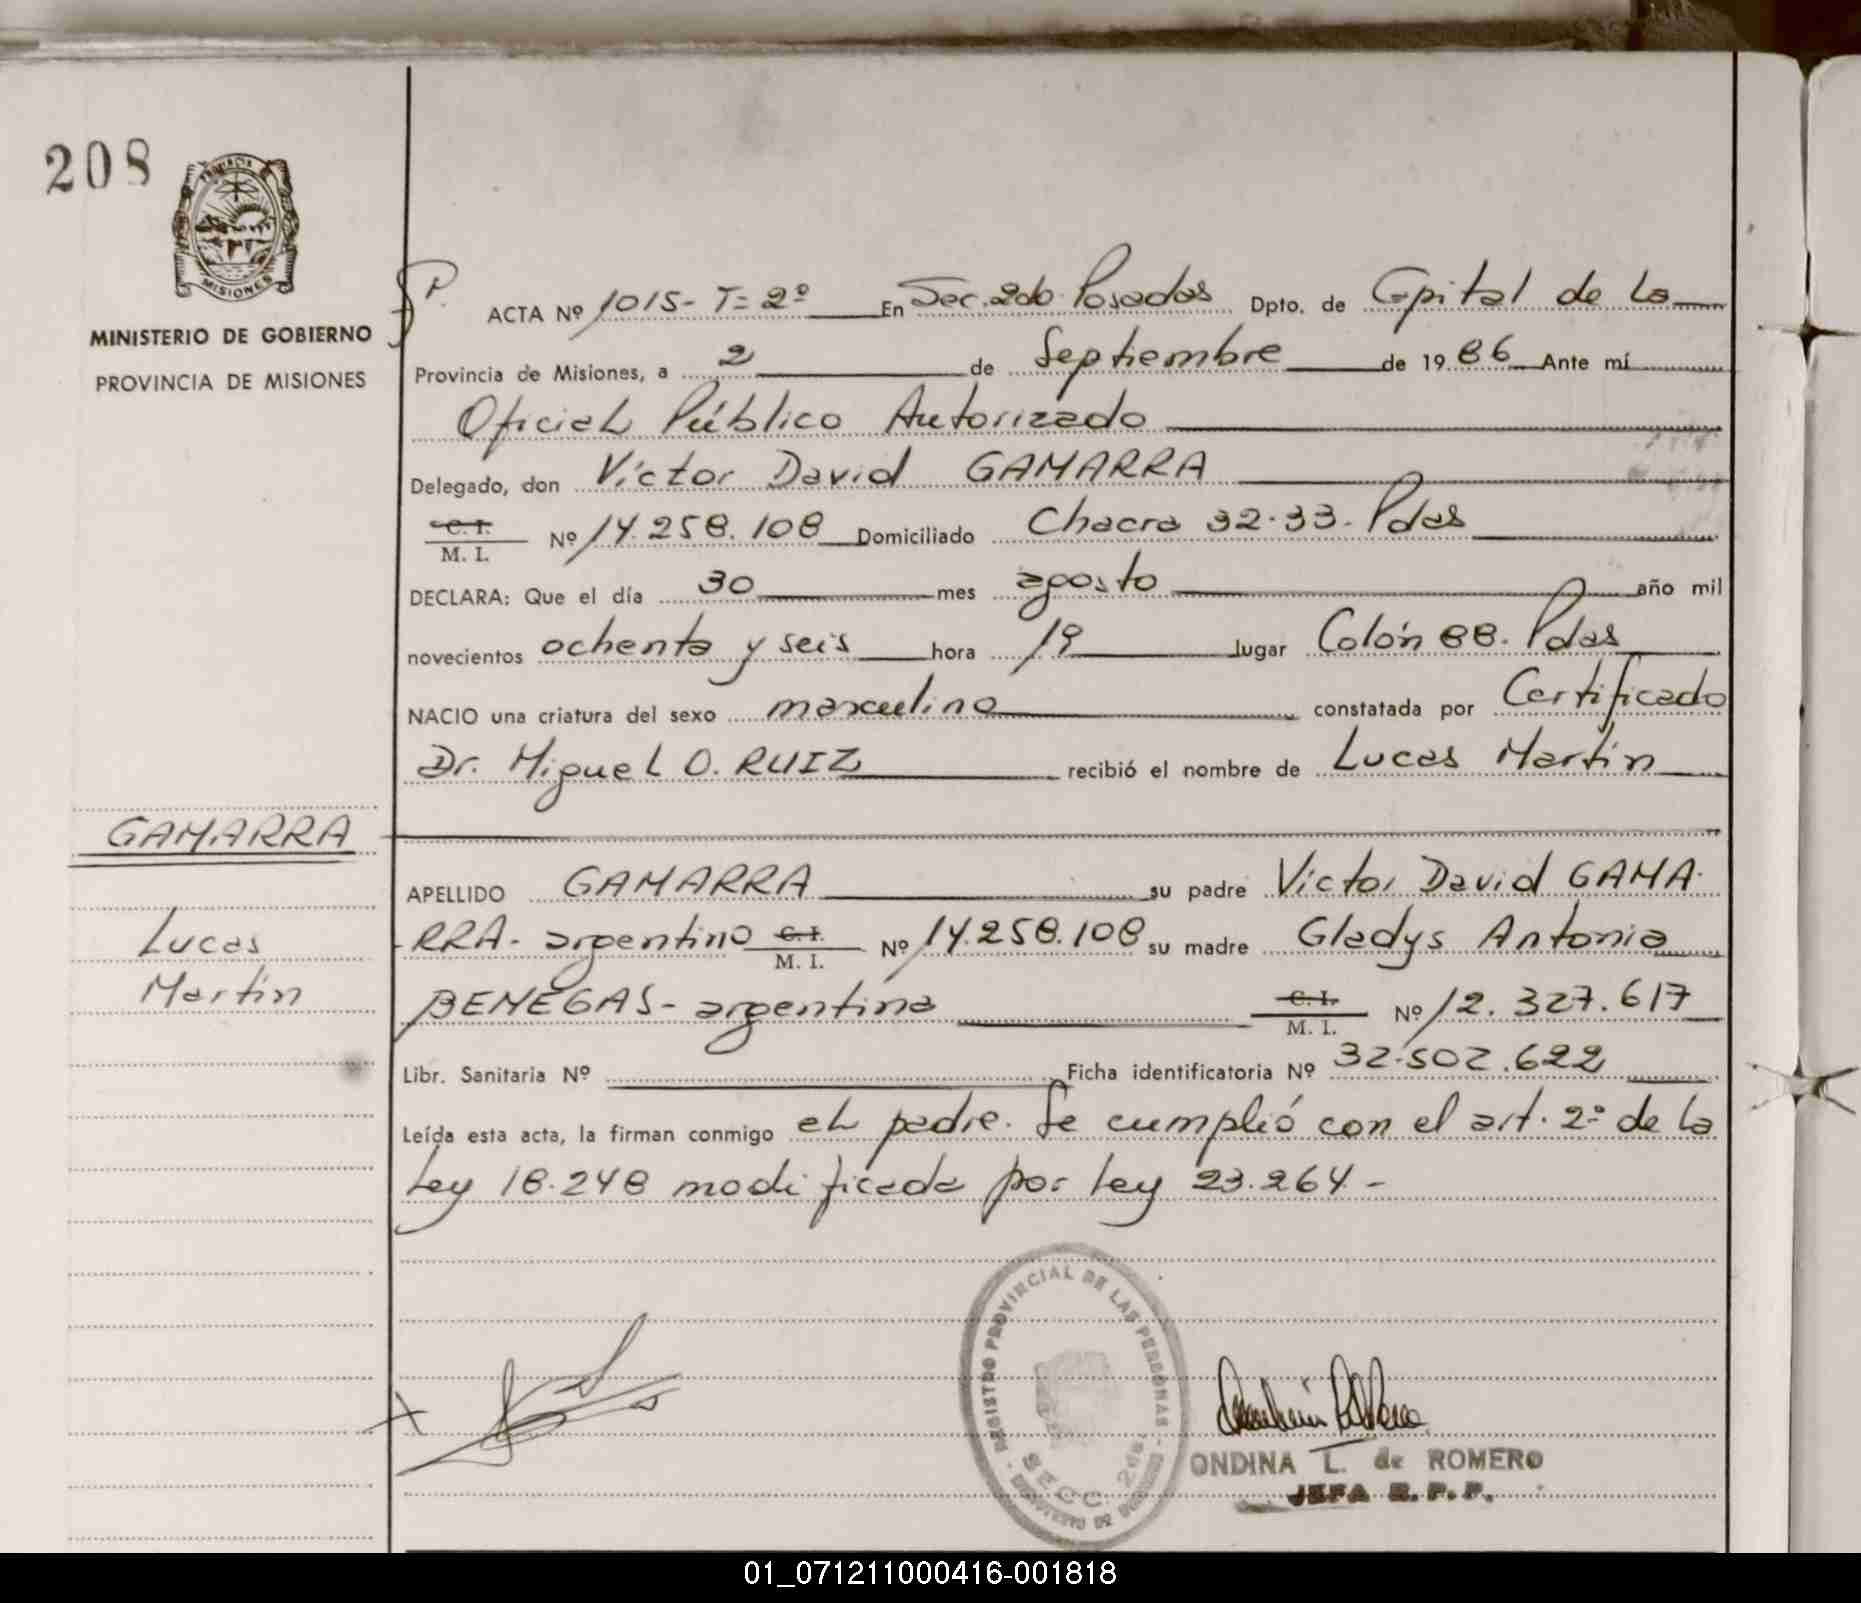 208
PROVINCIA
MISIONES
MINISTERIO DE GOBIERNO
PROVINCIA DE MISIONES
ACTA Nº 1015- T= 2º En Sec. 2do Posadas Dpto. de Cpital de La
Provincia de Misiones, a 2 de Septiembre de 1986 Ante mí
Oficial Público Autorizado
Delegado, don Víctor David GAMARRA
C. I.
M. I. Nº 14.258.108 Domiciliado Chacra 32-33. Pdas
DECLARA: Que el día 30 mes agosto año mil
novecientos ochenta y seis hora 19 lugar Colón 88. Pdas
NACIO una criatura del sexo masculino constatada por Certificado
Dr. Miguel O. RUIZ recibió el nombre de Lucas Martín
GAMARRA
APELLIDO GAMARRA su padre Víctor David GAMA-
Lucas
RRA- argentino C. I. M. I. Nº 14.258.108 su madre Gladys Antonia
Martín
BENEGAS- argentina C. I. M. I. Nº 12.327.617
Libr. Sanitaria Nº Ficha identificatoria Nº 32.502.622
Leída esta acta, la firman conmigo el padre. Se cumplió con el art. 2º de la
Ley 18.248 modificada por Ley 23.264-
REGISTRO PROVINCIAL DE LAS PERSONAS
SECC. 2da.
ONDINA L. de ROMERO
JEFA R.P.P.
01_071211000416-001818